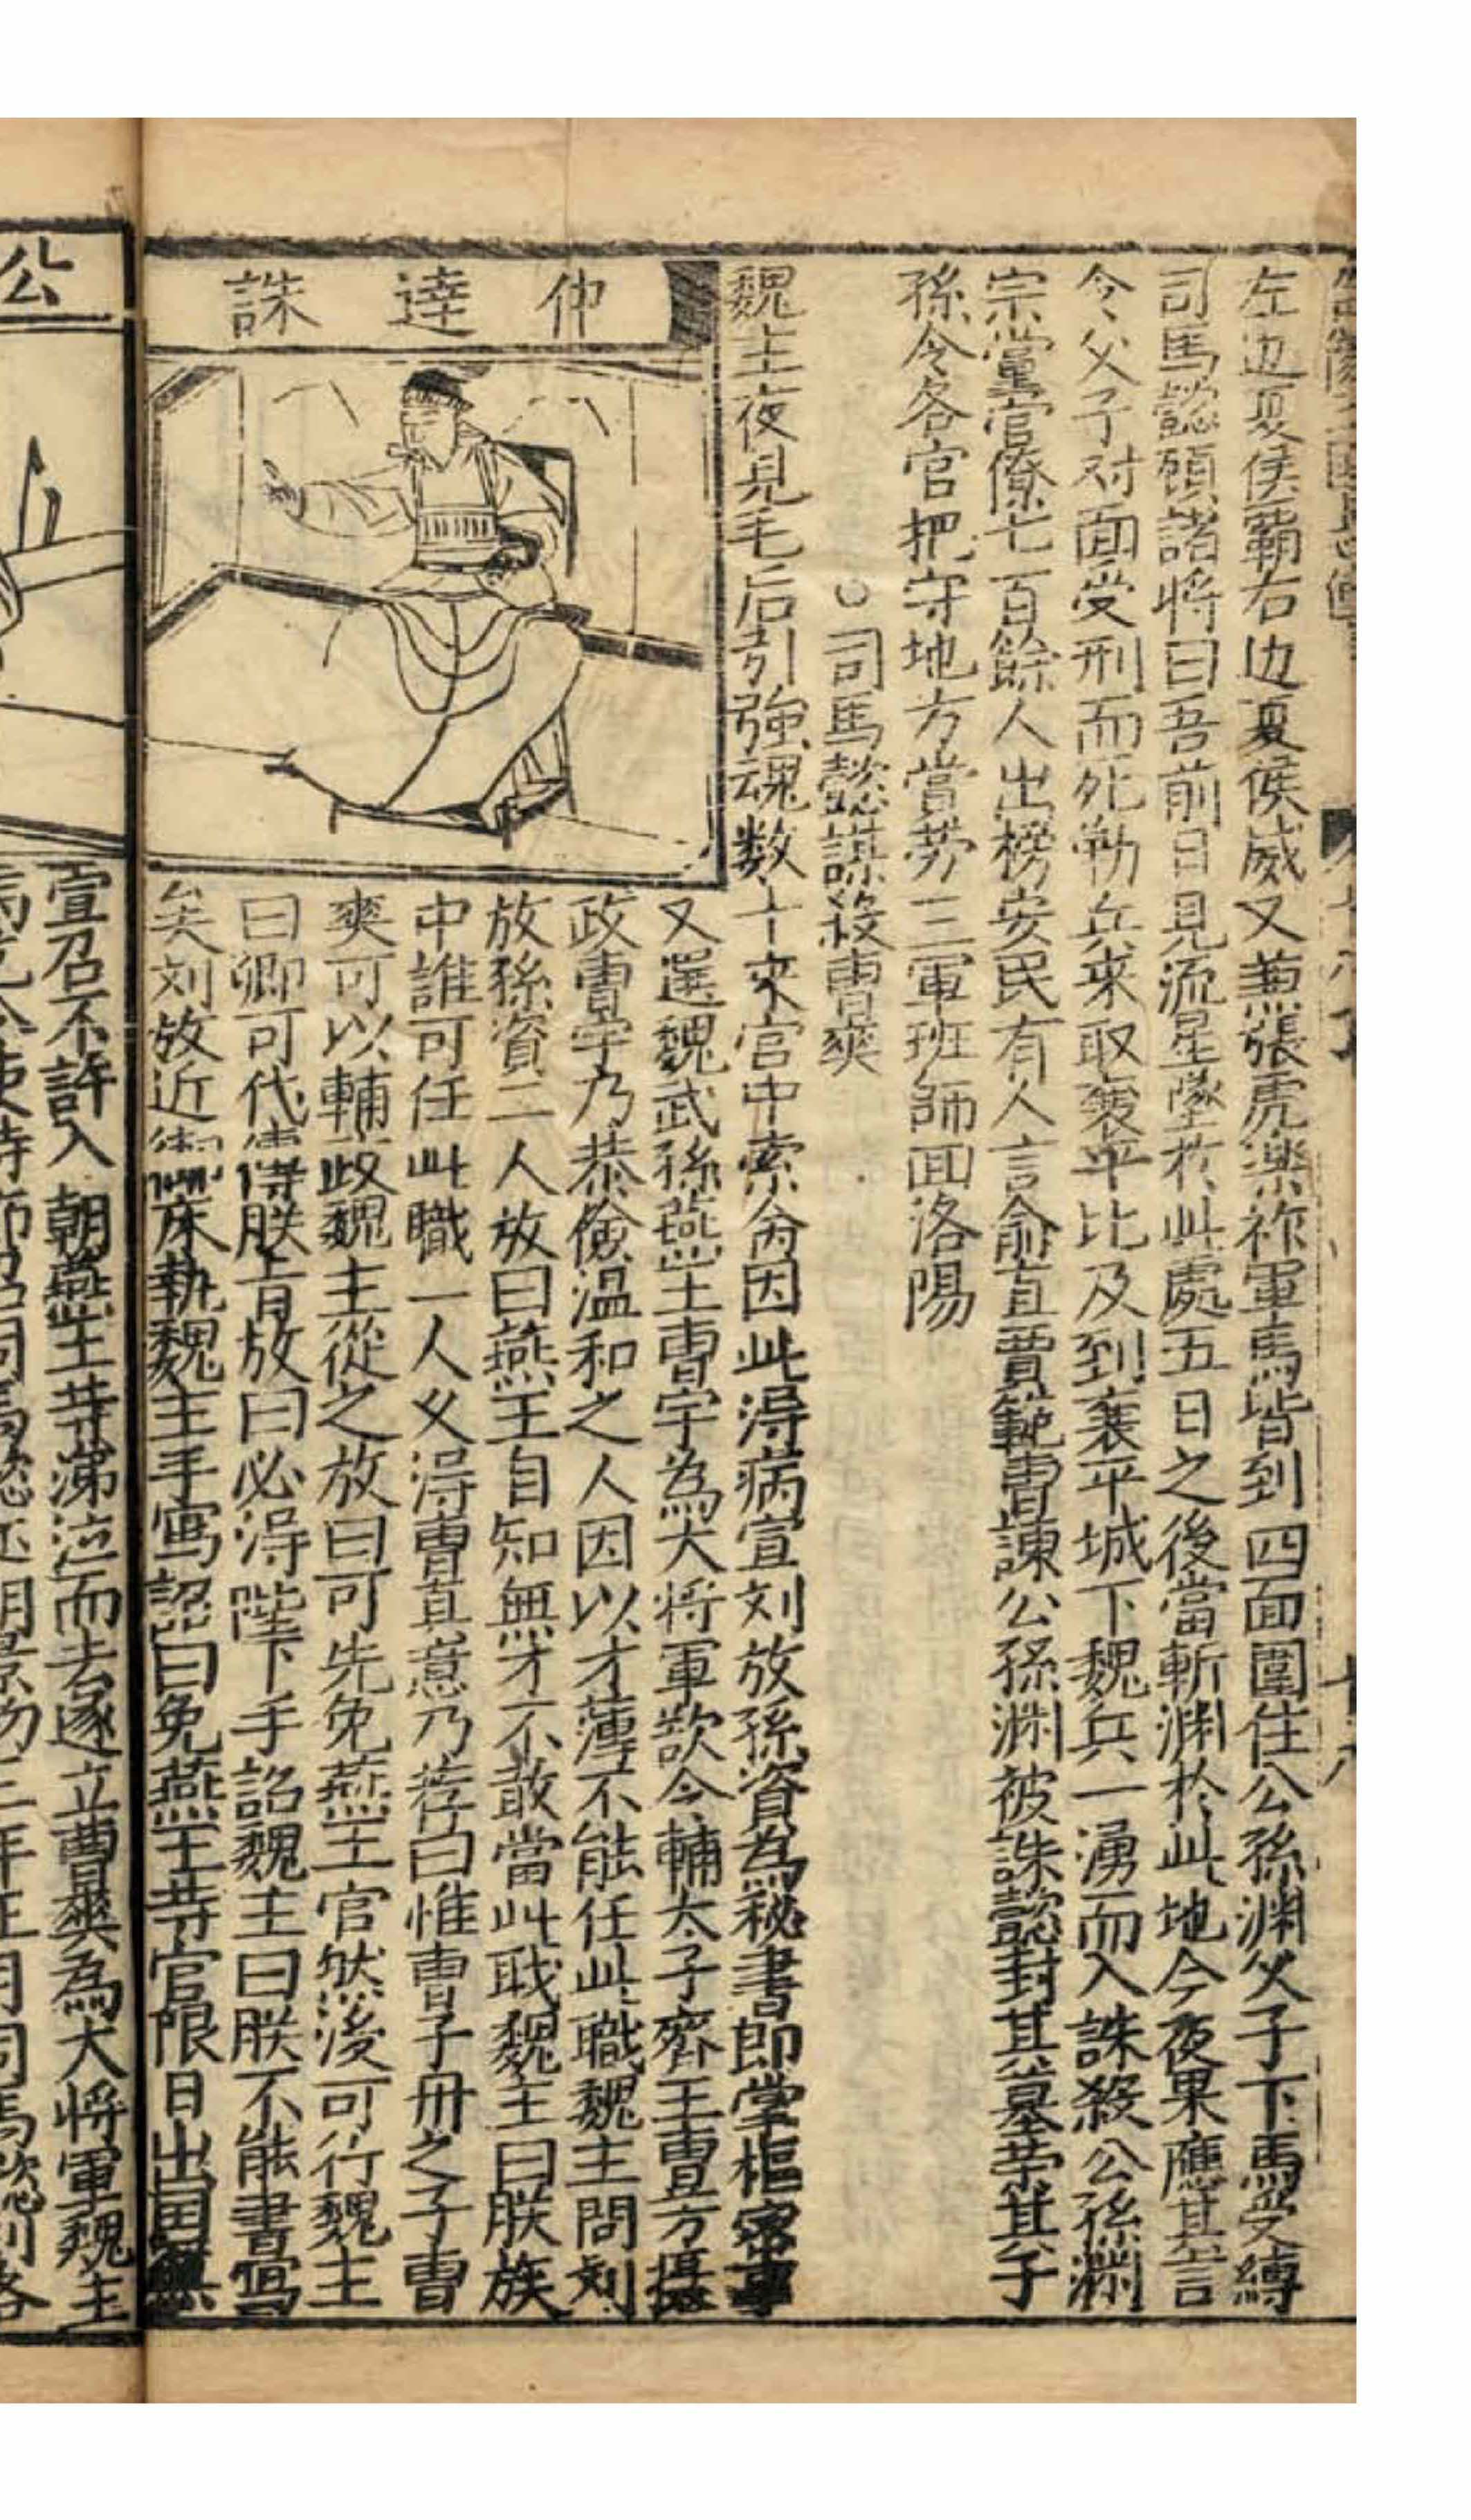 左边夏侯霸右边夏侯威又兼張虎樂祚軍馬皆到四面圍住公孫渊父子下馬受縛
司馬懿頋諸将曰吾前日見流星墜於此處五日之後當斬渊於此地今夜果應其言
令父子对面受刑而死勒兵來取襄平比及到襄平城下魏兵一湧而入誅殺公孫渊
宗黨官僚七百餘人出榜安民有人言俞直賈範曹諫公孫渊被誅懿封其墓荣其子
孫令各官把守地方賞劳三軍班師囬洛陽
○司馬懿謀殺曹爽
魏主夜見毛后引強魂数十來宮中索命因此淂病宣刘放孫資為秘書即掌樞密事
仲達誅
又選魏武孫燕王曹宇為大将軍欲令輔太子齊王曹方攝
政曹宇乃恭儉温和之人因以才薄不能任此職魏主問刘
放孫資二人放曰燕王自知無才不敢當此職魏主曰朕族
中誰可任此職一人义淂曹真意乃荐曰惟曹子丹之子曹
爽可以輔政魏主從之放曰可先免燕王官然後可行魏主
曰卿可代傳朕旨放曰必淂陛下手詔魏主曰朕不能書寫
矣刘放近御床執魏主手寫詔曰免燕王䓁官限日出囯無
公
宣召不許入朝燕王䓁涕泣而去遂立曹爽為大将軍魏主